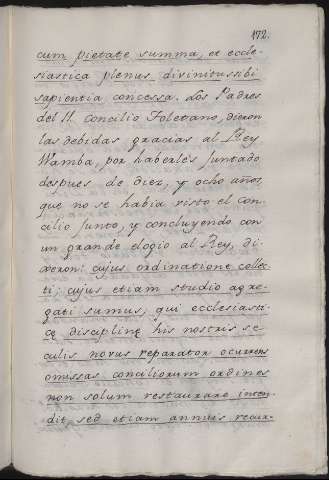 172.
cum pietate summa, et eccle-
siastica plenus divinitussibi
sapientia concessa. Los Padres
del 11. Concilio Toletano, dieron
las debidas gracias al Rey
Wamba, por haberles juntado
despues de diez, y ocho años,
que no se habia visto el Con-
cilio junto, y concluyendo con
un grande elogio al Rey, di-
xeron: cujus ordinatione collec-
ti; cujus etiam studio agre-
gati sumus, qui ecclesiasti-
cę disciplinę his nostris se-
culis novus reparator ocurrens
omissos conciliorum ordines
non solum restaurare inten-
dit, sed etiam annuis recur-